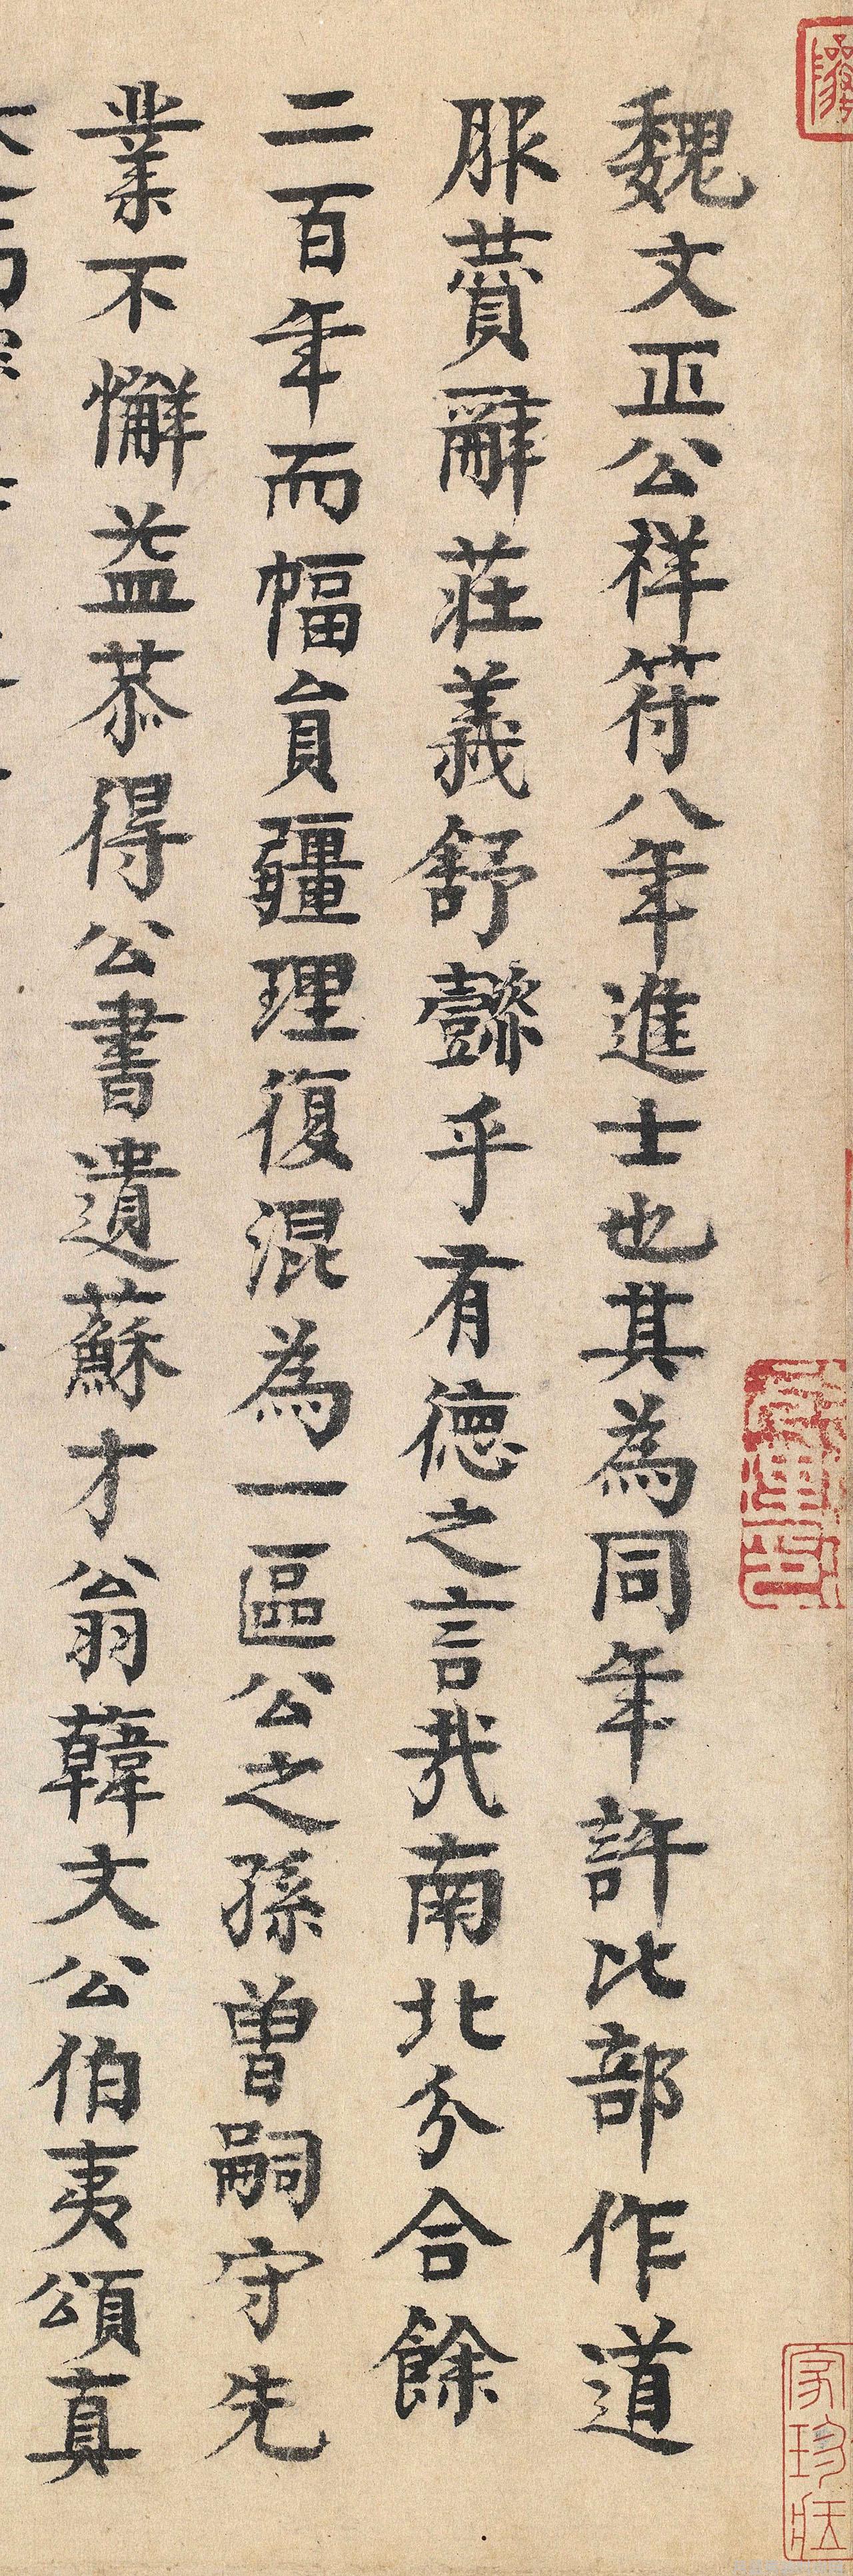 魏文正公祥符八年進士也其為同年許比部作道
服賛辭莊義舒懿乎有德之言哉南北分合餘
二百年而幅員疆理復混為一區公之孫曾嗣守先
業不懈益恭得公書遺蘇才翁韓文公伯夷頌真
家珍藏